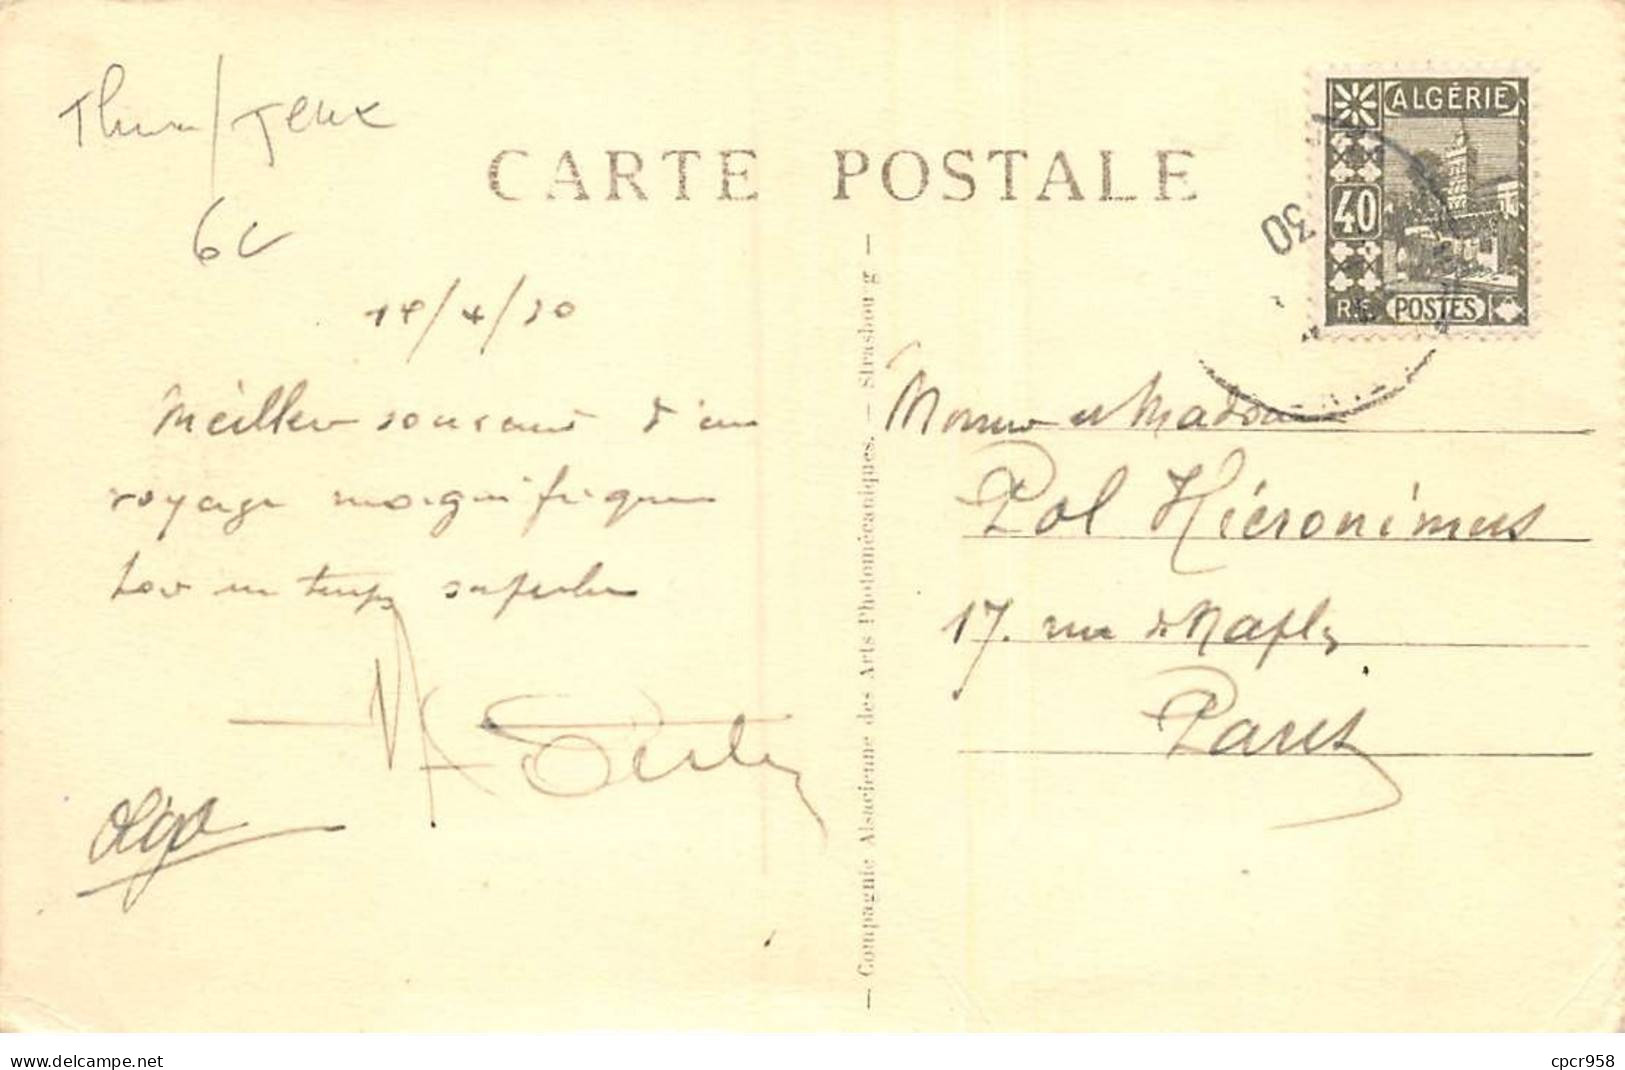 6c
CARTE POSTALE
ALGÉRIE
40
RF POSTES
30
/4/30
Meilleur souvenir d'un
voyage magnifique
un temps superbe
Olga
— Compagnie Alsacienne des Arts Photomécaniques. — Strasbourg —
Monsieur et Madame
Pol Hiéronimus
17. rue de Naples
Paris
www.delcampe.net
cpcr958